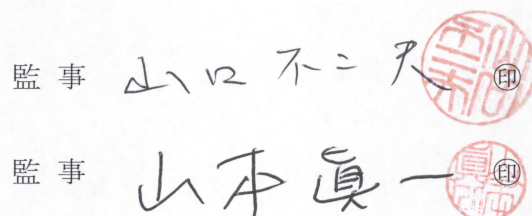 監事 山口不二夫 ㊞
監事 山本眞一 ㊞